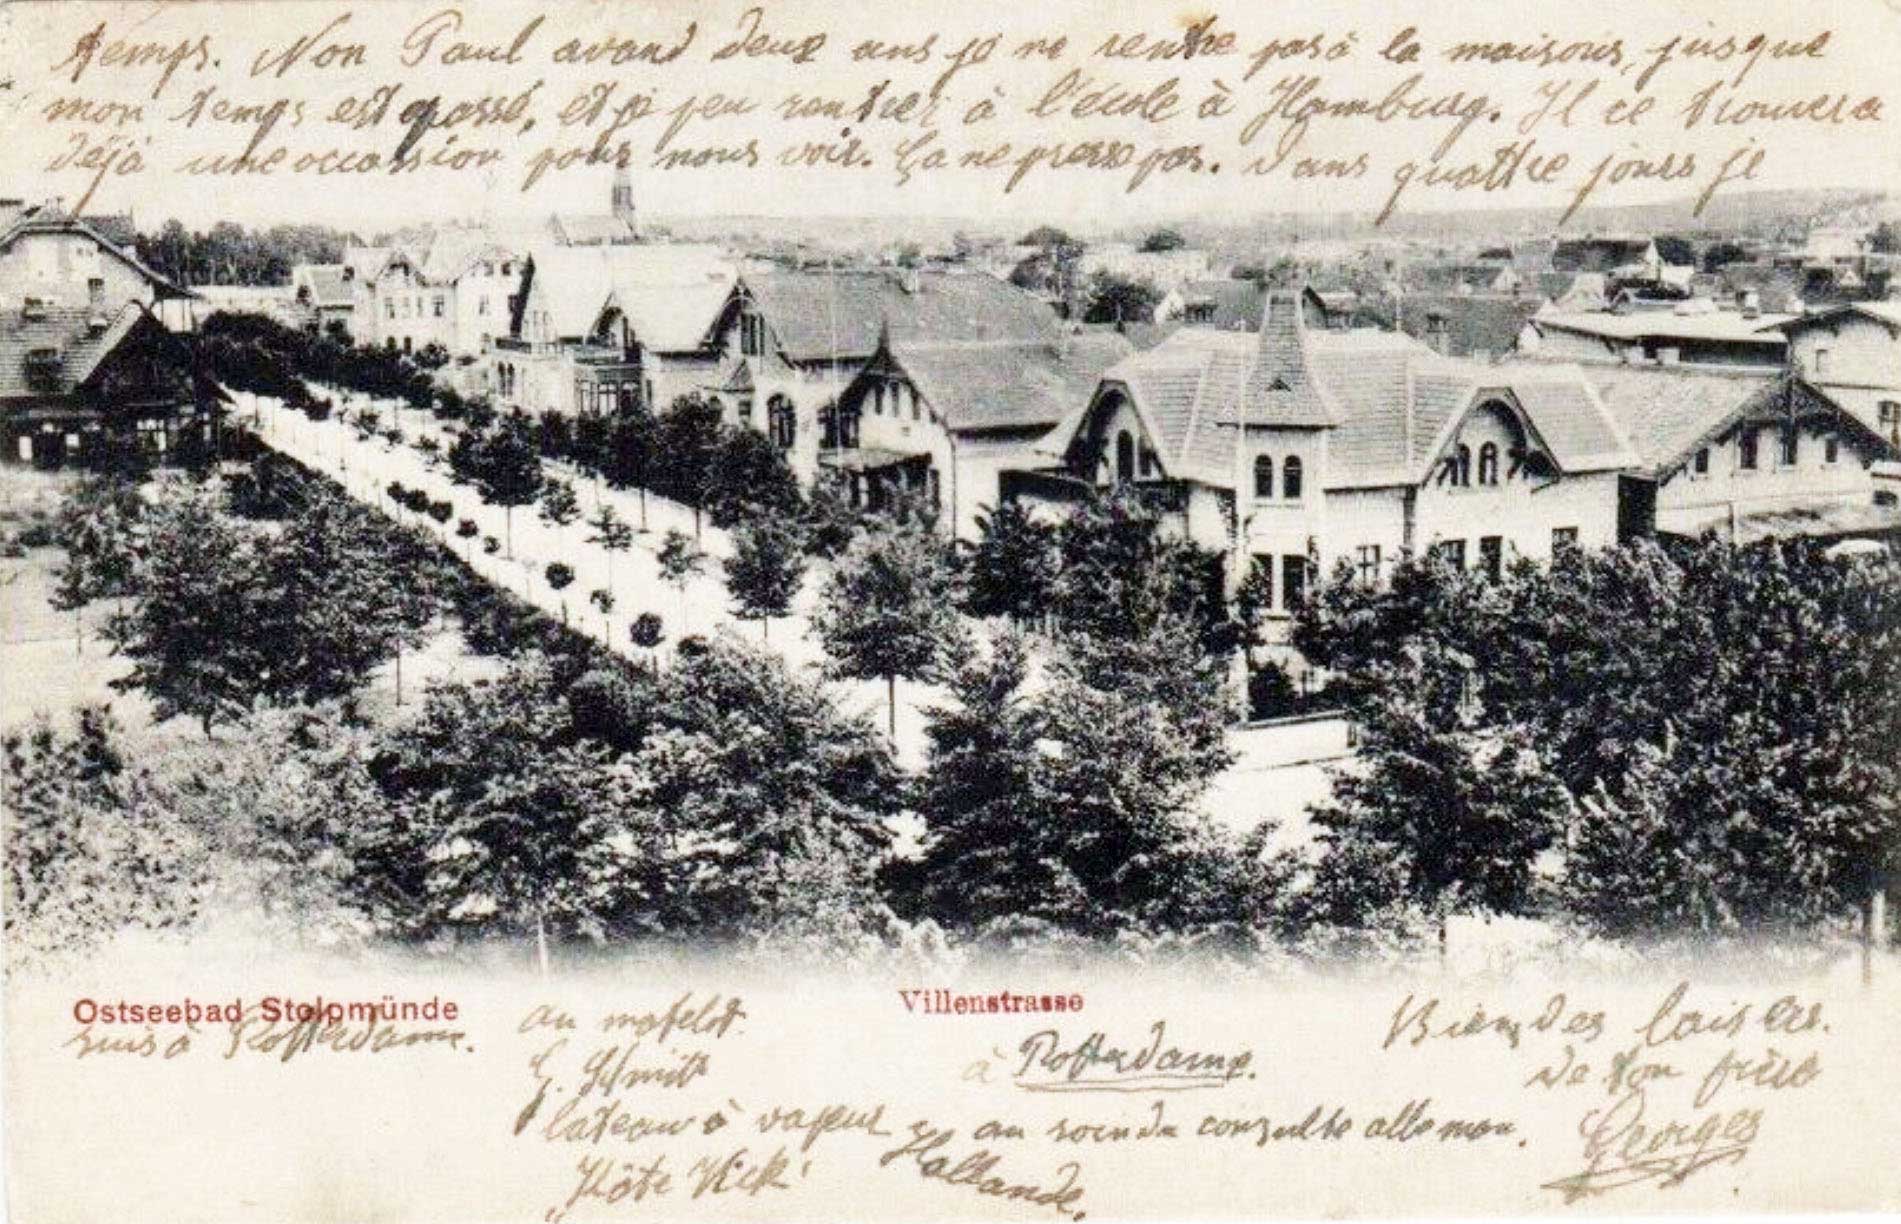 temps. Non Paul avand deux ans je ne rentre pas à la maisons, jusque
mon temps est passé, et je peu rentrer à l'école à Hamburg. Il ce trouvera
déjà une occassion pour nous voir. Ça ne presse pas. Dans quattre jours je
Ostseebad Stolpmünde
Villenstrasse
suis à Rotterdam.
au
G. Schmitt
à Rotterdame.
bateau à vapeur
au soin du consulte alleman.
"Käte Vick"
Hollande.
Bien des baisers.
de ton frère
Georges